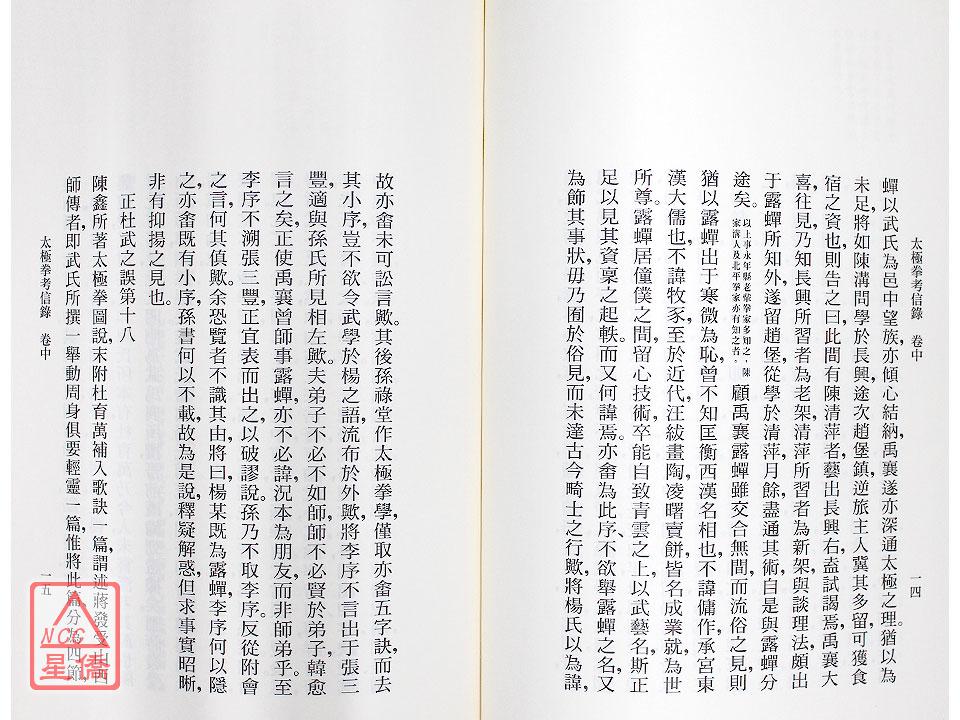 太極拳考信錄 卷中 一四
蟬以武氏為邑中望族，亦傾心結納，禹襄遂亦深通太極之理。猶以為
未足，將如陳溝問學於長興，途次趙堡鎮，逆旅主人冀其多留可獲食
宿之資也，則告之曰此間有陳清萍者，藝出長興右，盍試謁焉，禹襄大
喜，往見，乃知長興所習者為老架，清萍所習者為新架，與談理法，頗出
于露蟬所知外，遂留趙堡，從學於清萍，月餘，盡通其術，自是與露蟬分
途矣。以上事永年縣老輩拳家多知之，陳
家溝人及北平拳家亦有知之者。顧禹襄露蟬雖交合無間，而流俗之見，則
猶以露蟬出于寒微為恥，曾不知匡衡西漢名相也，不諱傭作，承宮東
漢大儒也，不諱牧豕，至於近代，汪紱畫陶，凌曙賣餅，皆名成業就，為世
所尊。露蟬居僮僕之間，留心技術，卒能自致青雲之上，以武藝名，斯正
足以見其資稟之起軼。而又何諱焉。亦畬為此序、不欲舉露蟬之名，又
為飾其事狀，毋乃囿於俗見，而未達古今畸士之行歟，將楊氏以為諱，
故亦畬未可訟言歟。其後孫祿堂作太極拳學，僅取亦畬五字訣，而去
其小序，豈不欲令武學於楊之語，流布於外歟，將李序不言出于張三
豐，適與孫氏所見相左歟。夫弟子不必不如師，師不必賢於弟子，韓愈
言之矣，正使禹襄曾師事露蟬，亦不必諱，況本為朋友而非師弟乎。至
李序不溯張三豐，正宜表而出之，以破謬說。孫乃不取李序。反從附會
之言，何其傎歟。余恐覽者不識其由，將曰楊某既為露蟬，李序何以隱
之，亦畬既有小序，孫書何以不載，故為是說，釋疑解惑，但求事實昭晰，
非有抑揚之見也。
正杜武之誤第十八
陳鑫所著太極拳圖說，末附杜育萬補入歌訣一篇，謂述蔣發受山西
師傳者，即武氏所撰一舉動周身俱要輕靈一篇，惟將此篇分為四節，
太極拳考信錄 卷中 一五
NCC
星僑